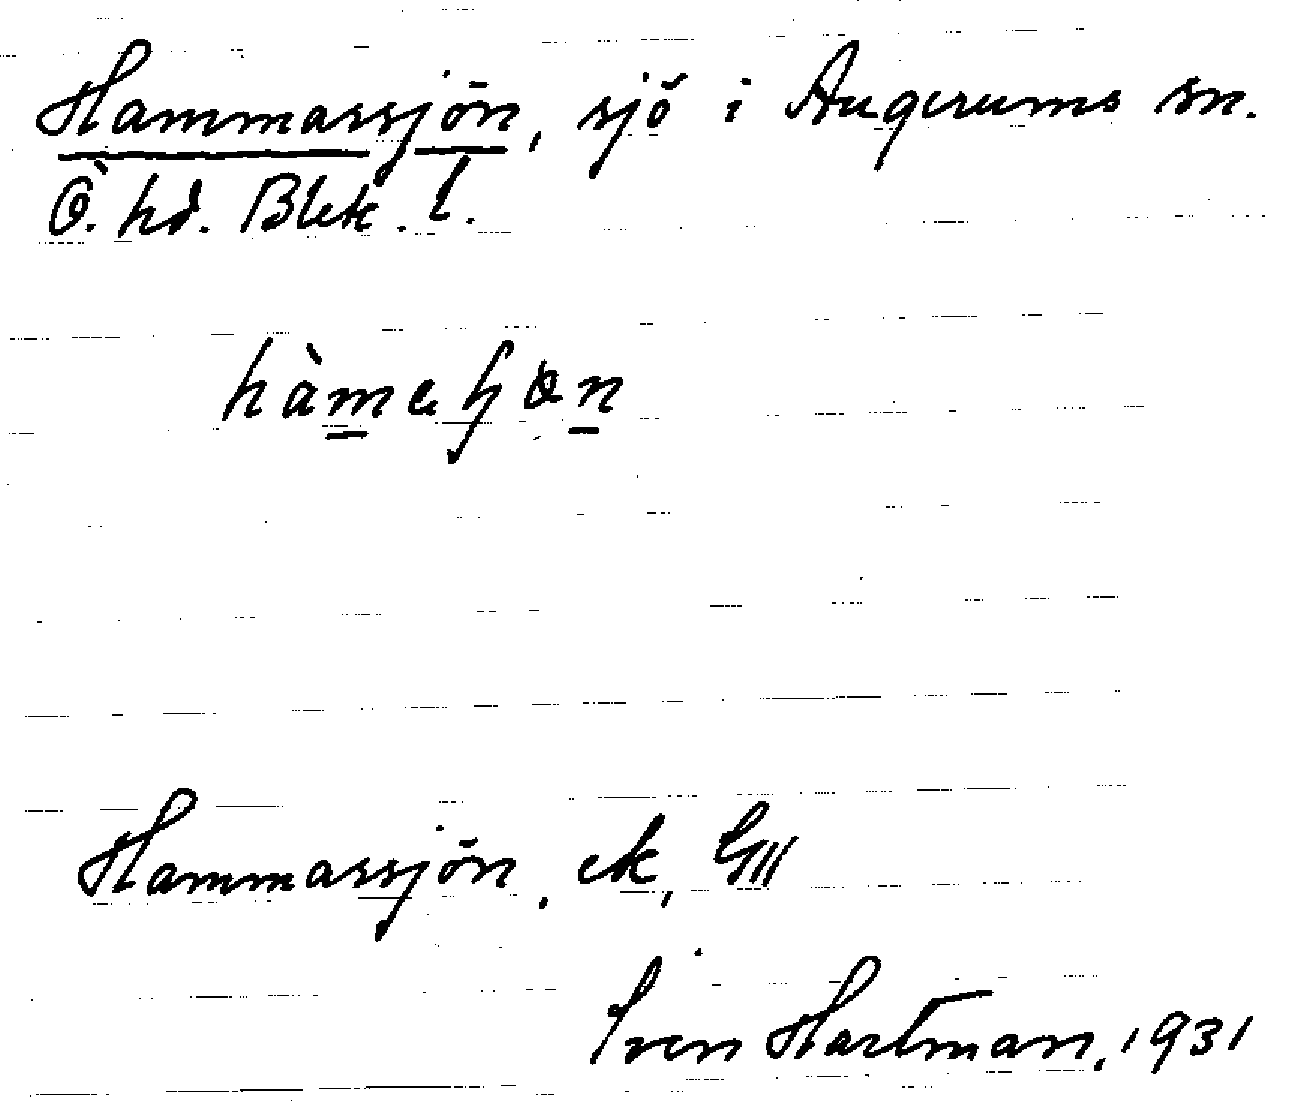 Hammarsjön, sjö i Augerums sn.
Ö. hd. Blek. l.
Hammarsjön. ek, GIII
Sven Hartman, 1931